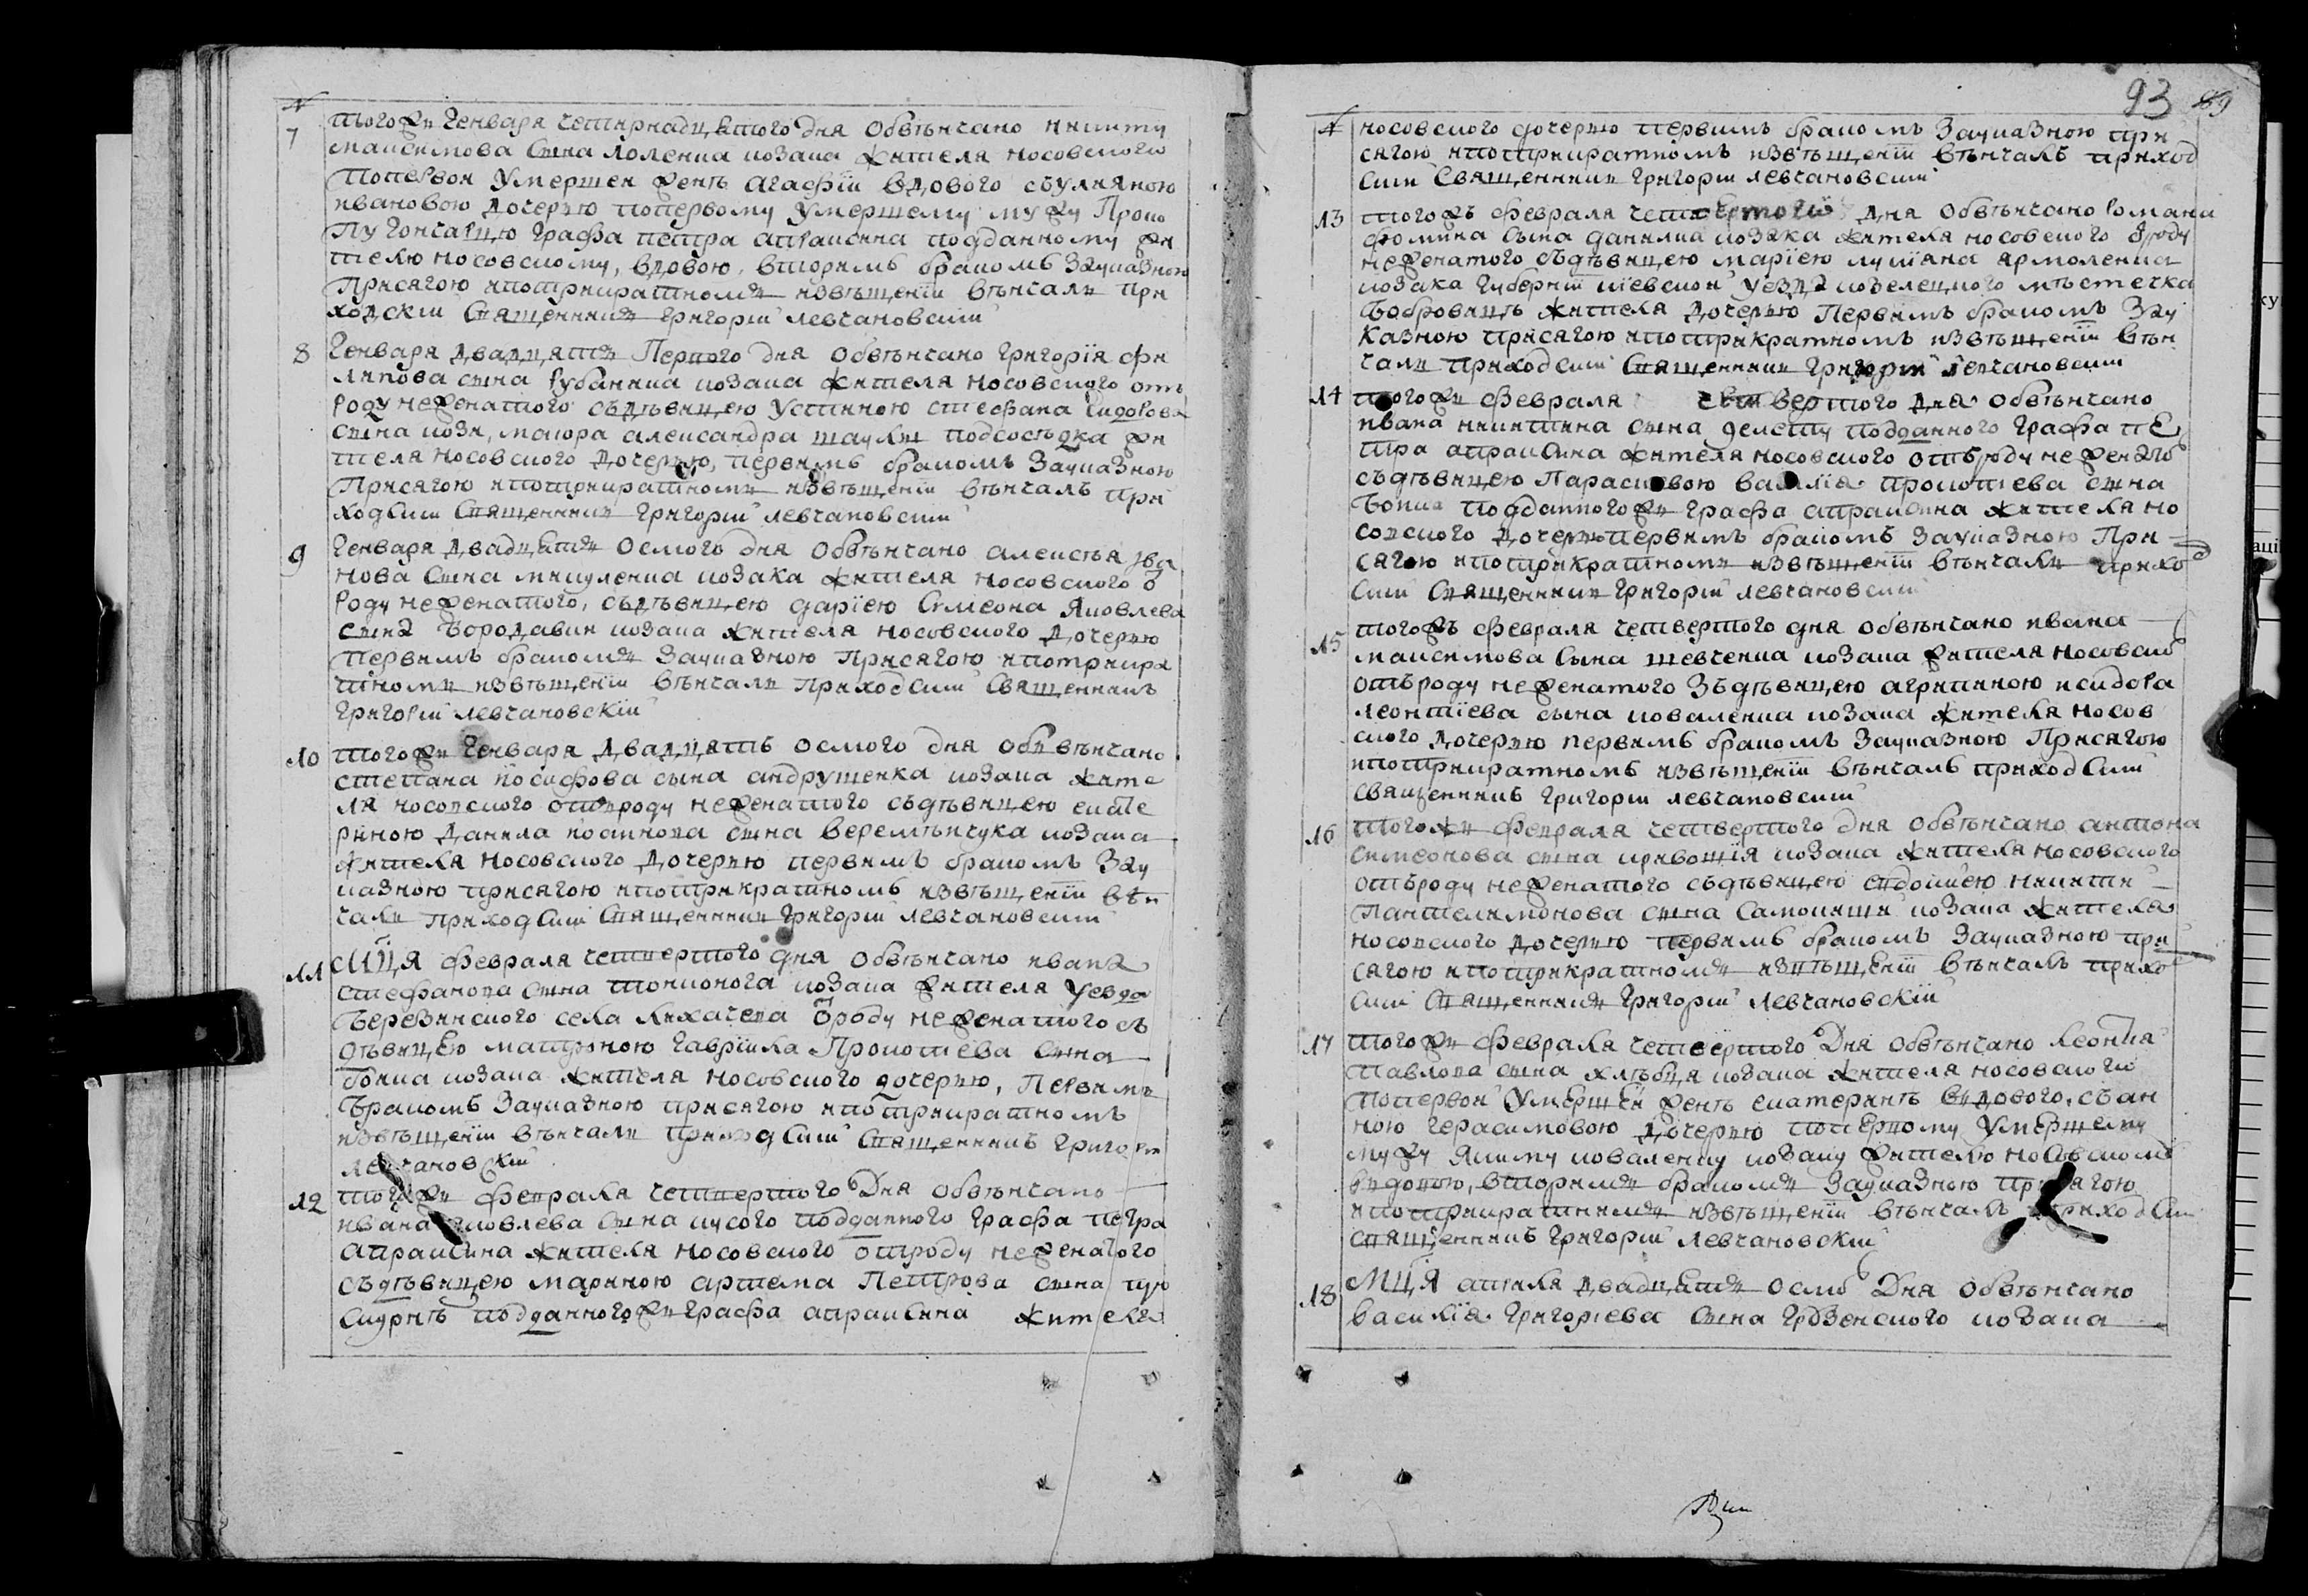 №
7 тогожъ Генваря четирнадцятого дня обвѣнчано никиту
максимова сына Коленка козака жителя носовского
попервой умершей женѣ агафіи вдового съулияною
ивановою дочерью попервому умершему мужу Проко
пу гончарцю графа петра апраксина подданному жи
телю носовскому, вдовою, вторимъ бракомъ зауказною
Присягою ипотрикратномъ извѣщеніи вѣнчалъ при
ходскій Священникъ Григорій левчановскій
8 Генваря двадцять Первого дня обвѣнчано григорія фи
липова сына рубаника козака жителя носовского отъ
роду неженатого съдѣвицею устиною стефана сидорова
сына козы, маіора александра шаулы подсосѣдка жи
теля носовского дочерью, первимъ бракомъ зауказною
Присягою ипотрикратномъ извѣщеніи вѣнчалъ при
ходскій Священникъ Григорій левчановскій
9 Генваря двадцять осмого дня обвѣнчано алексѣя ива
нова сына мицуленка козака жителя носовского ѿ
роду неженатого, съдѣвицею даріею Симеона яковлева
сына Бородавки козака жителя носовского дочерью
Первимъ бракомъ зауказною Присягою ипотрикра
тномъ извѣщеніи вѣнчалъ приходскій Священникъ
Григорій левчановскій
10 тогожъ Генваря двадцять осмого дня обвѣнчано
степана іосифова сына андрушенка козака жите
ля носовского отъроду неженатого съдѣвицею екате
риною данила сына веремѣнчука козака
жителя носовского дочерью первимъ бракомъ зау
казною присягою ипотрикратномъ извѣщеніи вѣн
чалъ приходскій Священникъ Григорій левчановскій
11 Мця февраля четвертого дня обвѣнчано ивана
стефанова сына тонконога козака жителя уезда
Березинского села лихачева ѿроду неженатого съ
дѣвицею матроною Гавріила Прокопіева сына
бонка козака жителя носовского дочерью, Первимъ
Бракомъ зауказною присягою ипотрикратномъ
извѣщеніи вѣнчалъ приходскій Священникъ Григорій
левчановскій
12 тогожъ февраля четвертого дня обвѣнчано
ивана яковлева сына кусого подданного графа петра
апраксина жителя носовского отроду неженатого
съдѣвицею мариною артема Петрова сына
подданногожъ графа апраксина жителя
93 89
№ носовского дочерью первимъ бракомъ зауказною при
сягою ипотрикратномъ извѣщеніи вѣнчалъ приход
скій Священникъ Григорій левчановскій
13 тогожъ февраля четвертого дня обвѣнчано романа
фомина сына данилка козака жителя носовского ѿроду
неженатого съдѣвицею маріею лукіяна ярмоленка
козака губерніи кіевской уезда козелецкого мѣстечка
Бобровицѣ жителя дочерью Первимъ бракомъ зау
казною присягою ипотрикратномъ извѣщеніи вѣн
чалъ приходскій Священникъ Григорій левчановскій
14 тогожъ февраля четвертого дня обвѣнчано
ивана никитина сына демешу подданного графа пе
тра апраксина жителя носовского отъроду неженато
съдѣвицею Парасковою василія прокопіева сына
Бонка подданногожъ графа апраксина жителя но
совского дочерью первимъ бракомъ зауказною При
сягою ипотрикратномъ извѣщеніи вѣнчалъ приход
скій Священникъ Григорій левчановскій
15 тогожъ февраля четвертого дня обвѣнчано ивана
максимова сына шевченка козака жителя носовско
отъроду неженатого здѣвицею агрипиною исидора
леонтіева сына коваленка козака жителя носов
ского дочерью первимъ бракомъ зауказною Присягою
ипотрикратномъ извѣщеніи вѣнчалъ приходскій
священникъ Григорій левчановскій
16 тогожъ февраля четвертого дня обвѣнчано антона
симеонова сына кривошія козака жителя носовского
отъроду неженатого съдѣвицею евдокіею никити
Пантелимонова сына самокиши козака жителя
носовского дочерью первимъ бракомъ зауказною при
сягою ипотрикратномъ извѣщеніи вѣнчалъ приход
скій Священникъ Григорій левчановскій
17 тогожъ февраля четвертого дня обвѣнчано леонтія
Павлова сына хлѣбця козака жителя носовского
попервой умершей женѣ екатеринѣ вдового, съан
ною герасимовою дочерью попервому умершему
мужу якиму коваленку козаку жителю носовском
вдовою, вторимъ бракомъ зауказною присягою
ипотрикратнимъ извѣщеніи вѣнчалъ приходскій
священникъ Григорій левчановскій
18 Мця апрыля двадцять осмо дня обвѣнчано
василія григоріева сына козака